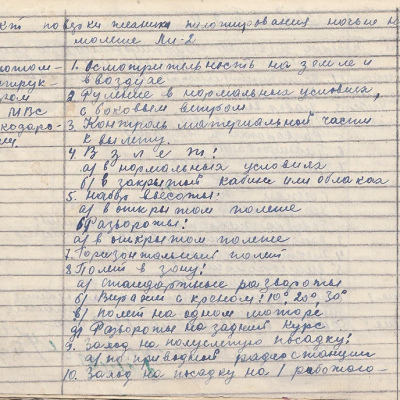 кт по технике пилотирования ночью на
самолете Ли-2
1. Осмотрительность на земле и
в воздухе
2. Руление в нормальных условиях,
с боковым ветром
3. Контроль материальной части
к вылету.
4. Взлет!
а) в нормальных условиях
б) в закрытой кабине или облаках
5. Набор высоты!
а) в открытом полете
6. Развороты!
а) в открытом полете
7. Горизонтальный полет
8. Полет в зону!
а) стандартные развороты
б) Виражи с креном! 10°, 20°, 30°
в) полет на одном моторе
д) Развороты на задний курс
9. Заход на полуслепую посадку!
а) по приводной радиостанции
10. Заход на посадку на 1 работаю-
МВС